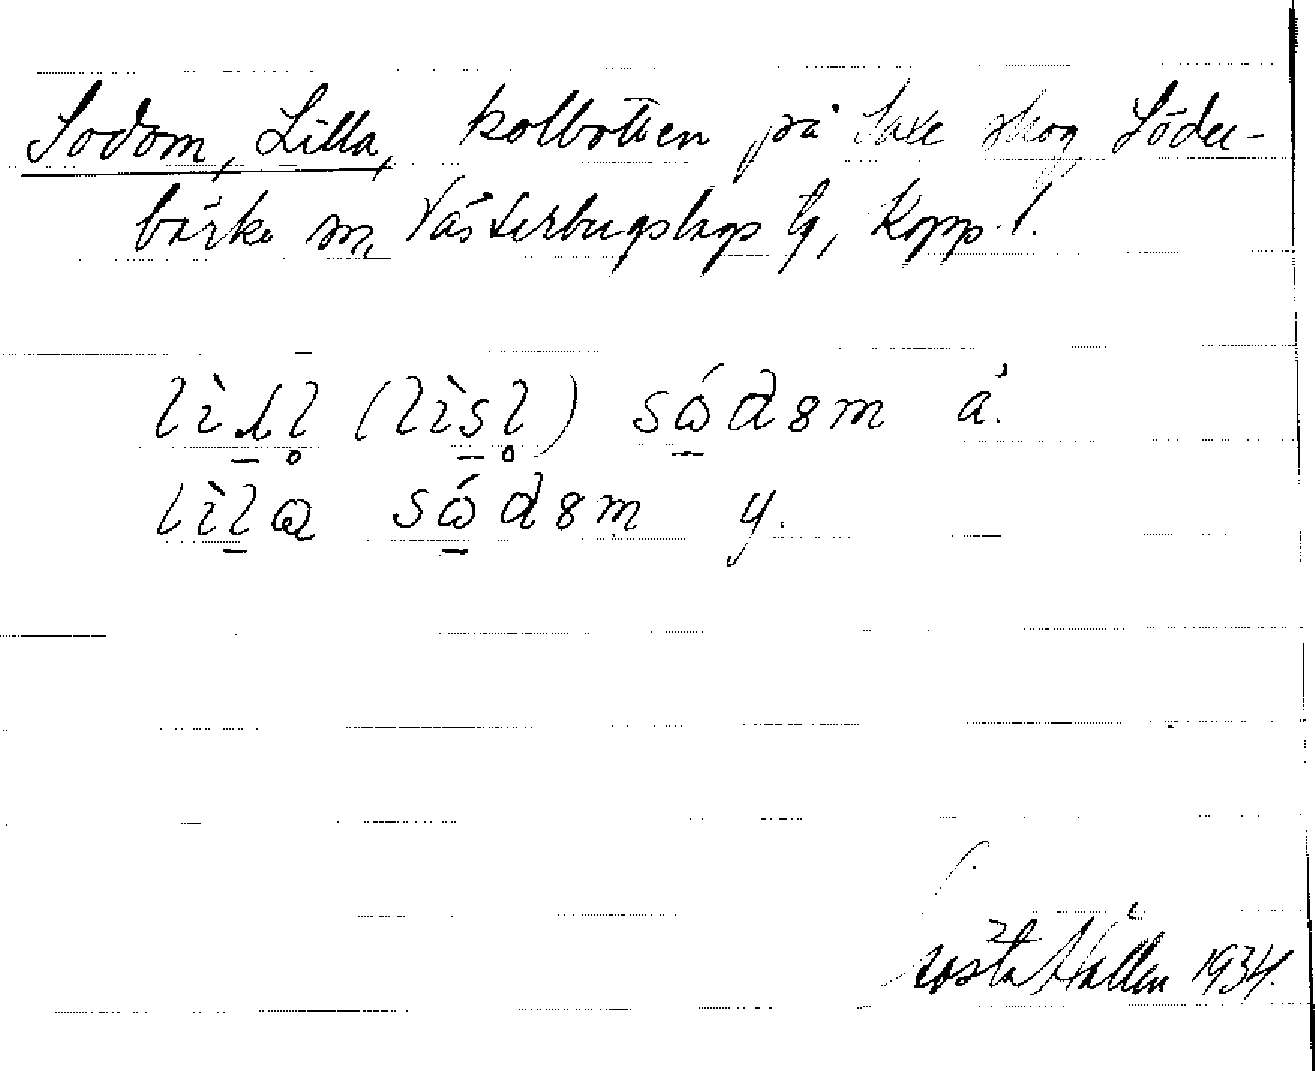 Sodom, Lilla, kolbotten på Saxe skog, Söder-
bärke sn, Västerbergslags tg, Kopp. l.
(lìsl) sódəm ä.
lìla sódəm y.
Gösta Hallén 1934.